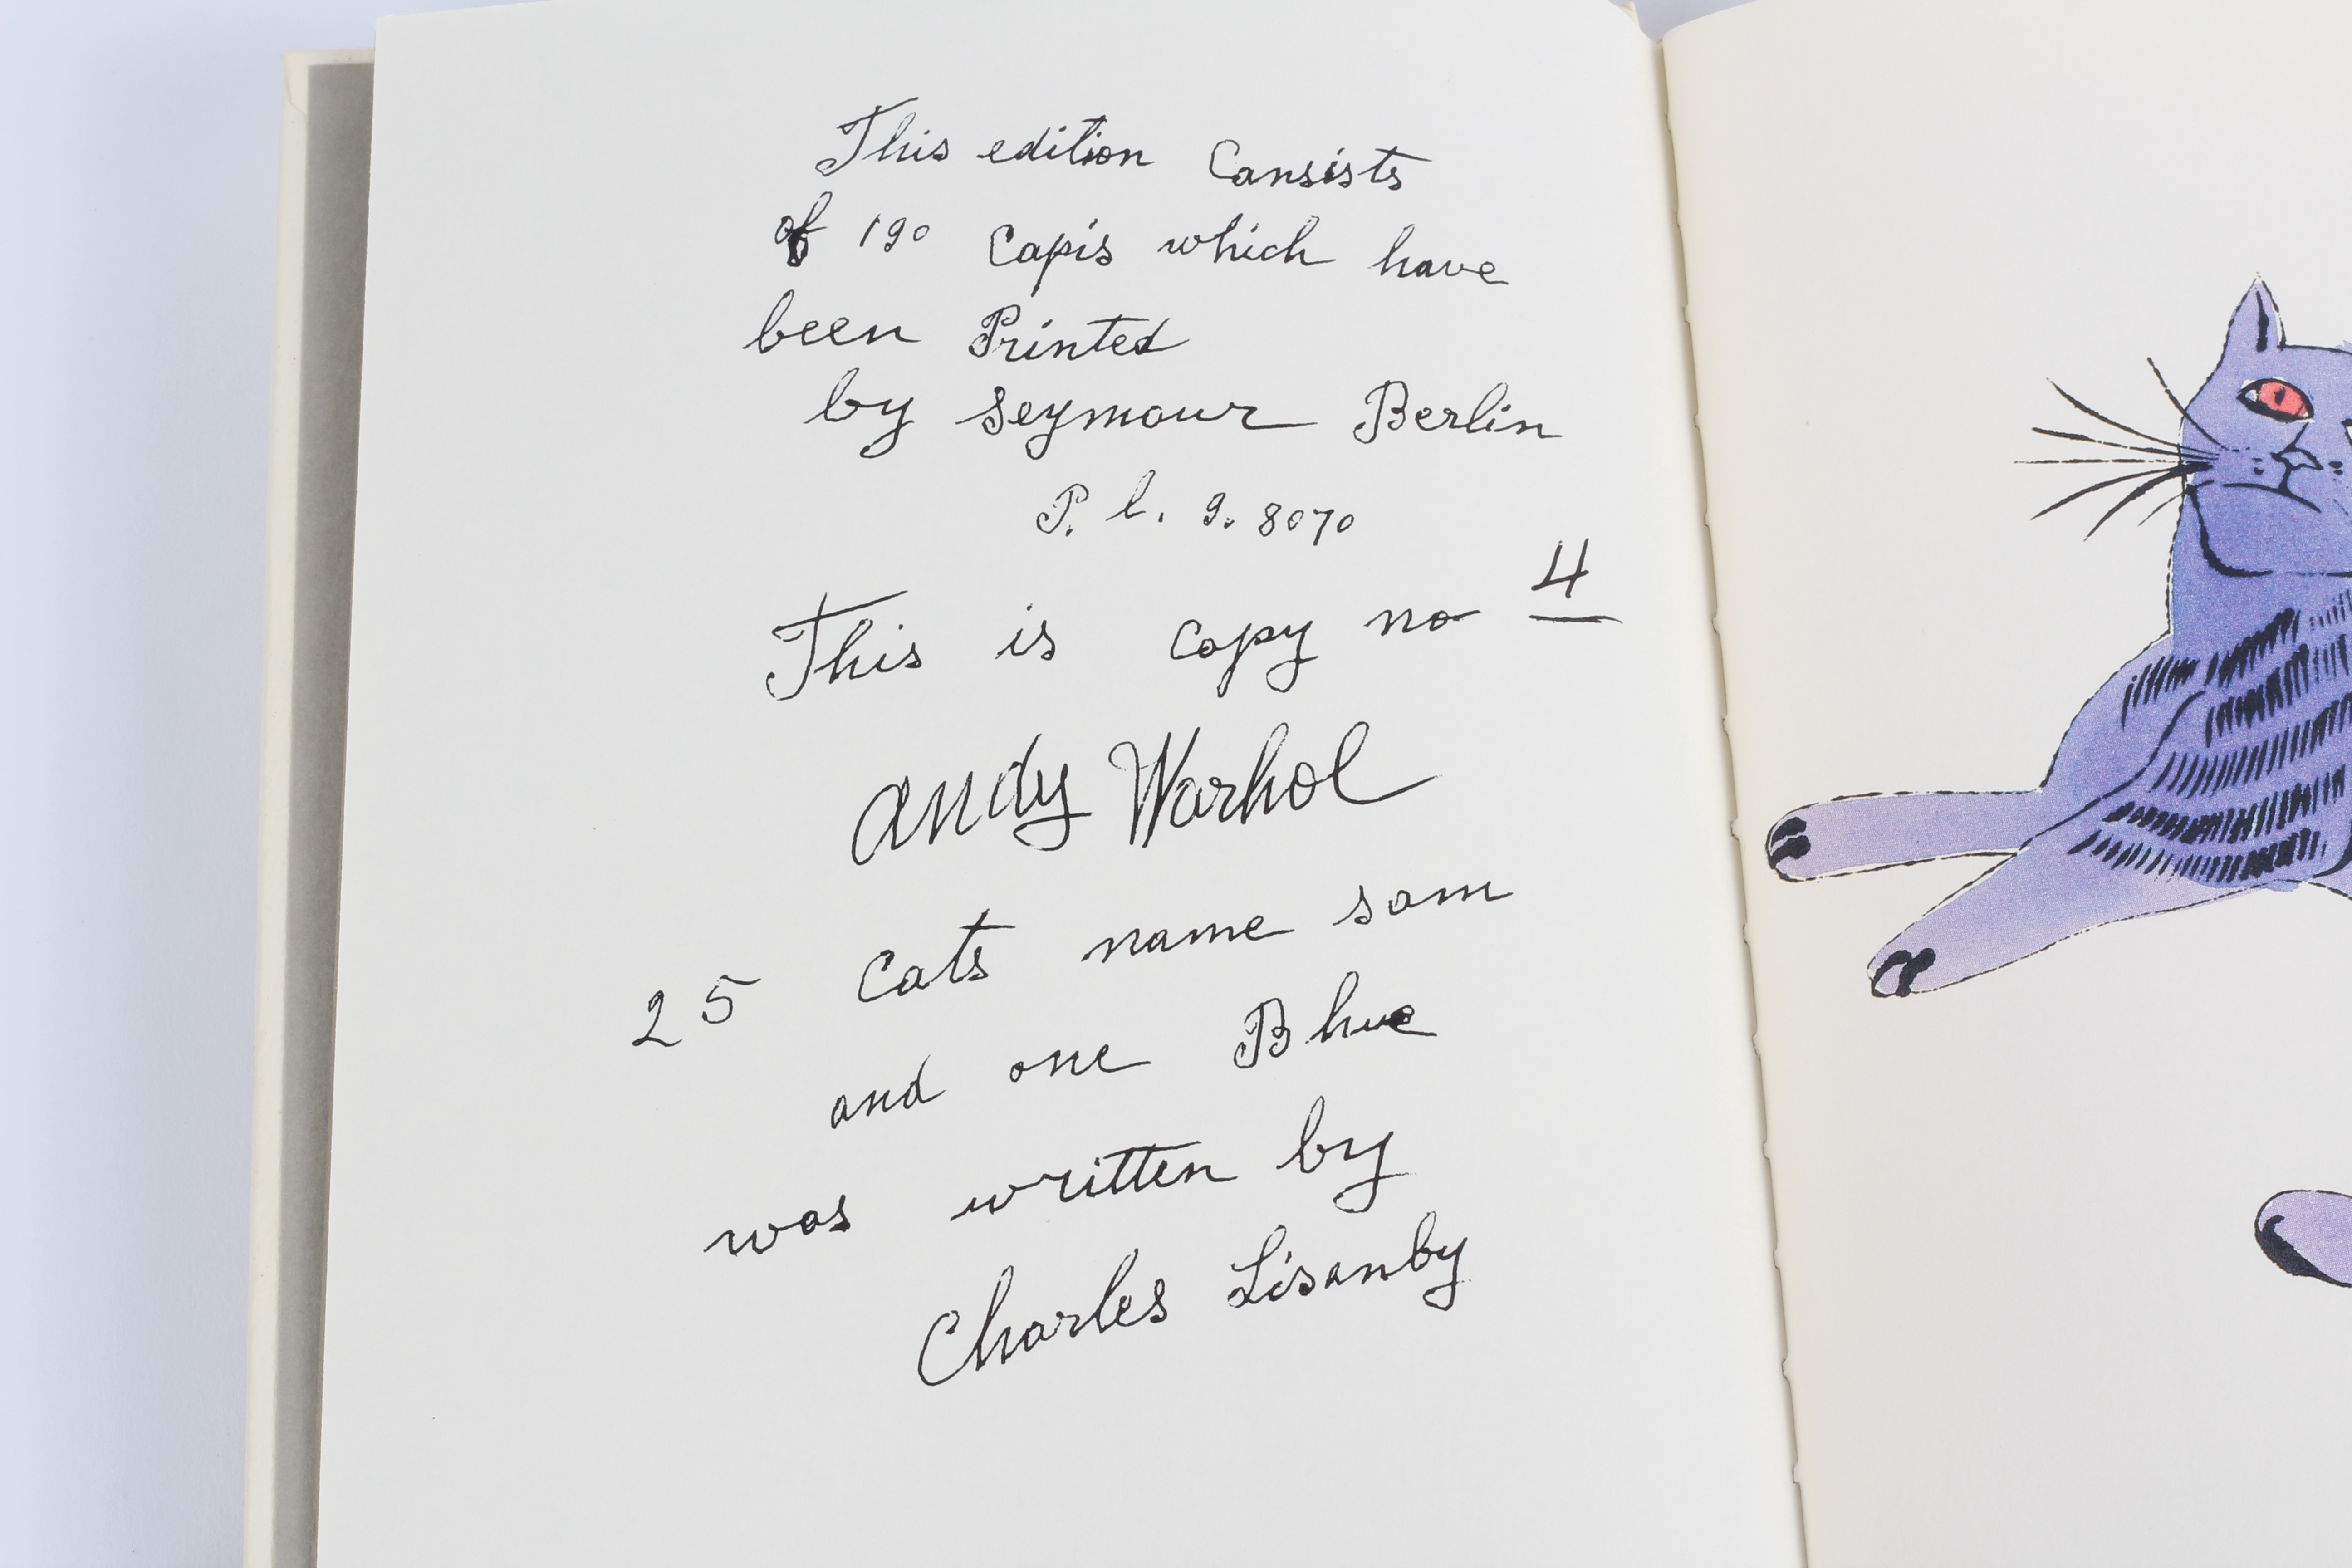 This edition Cansists
of 190 Capis which have
been Printed
by Seymour Berlin
P. l. 9. 8070
This is Copy no 4
Andy Warhol
25 Cats name sam
and one Blue
was written by
Charles Lisanby